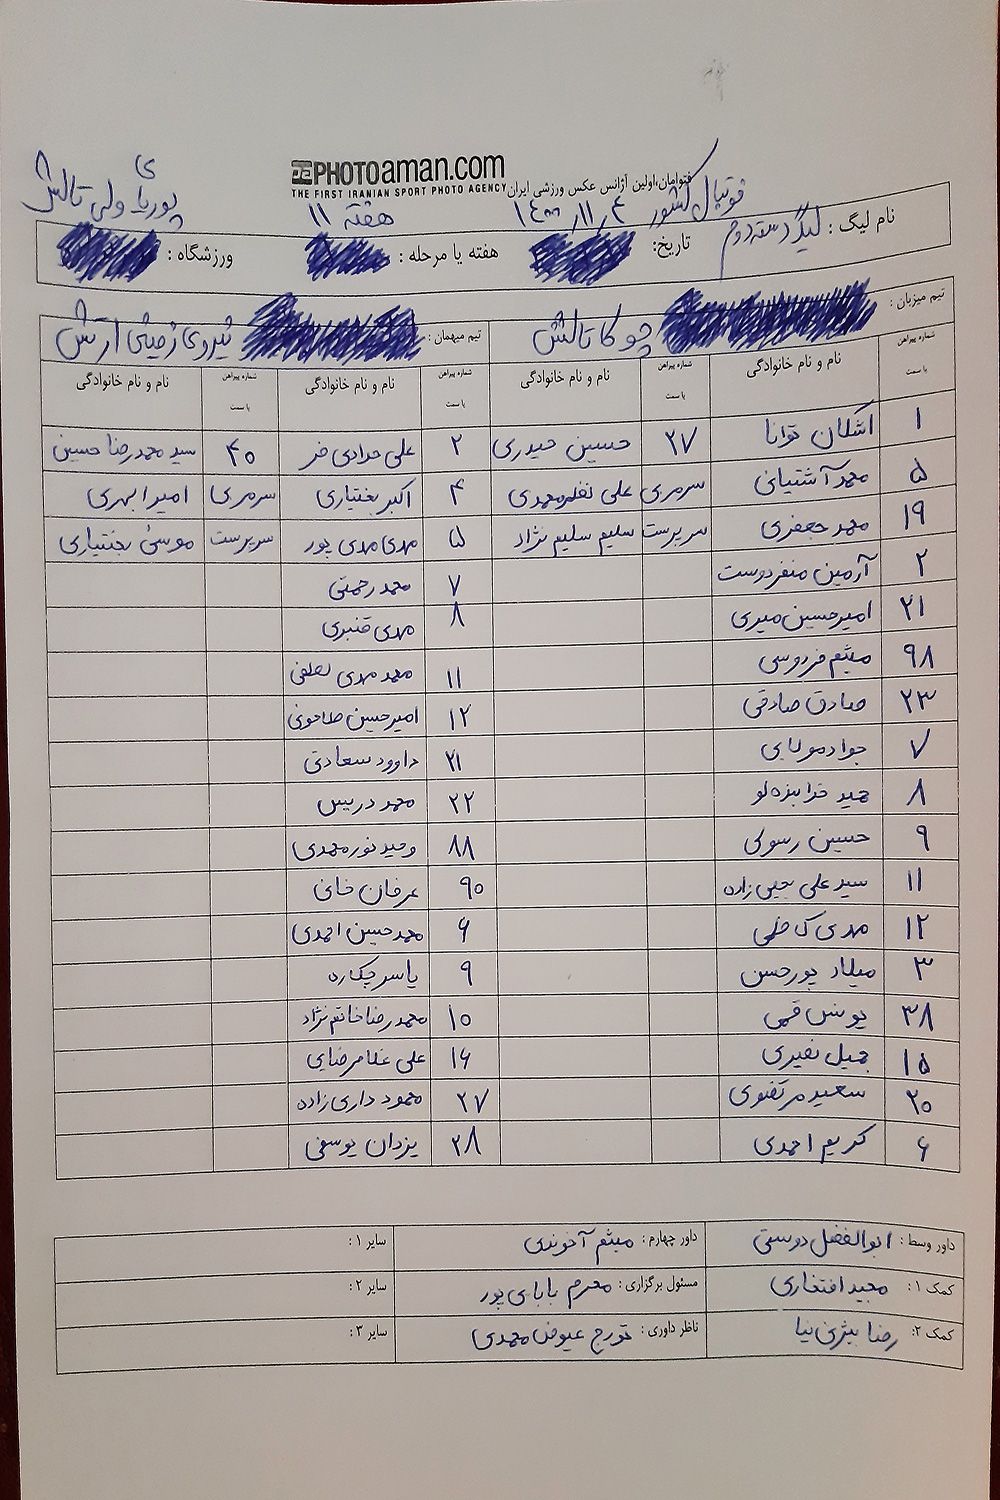 PHOTOaman.com
THE FIRST IRANIAN SPORT PHOTO AGENCY فتوامان،اولین آژانس عکس ورزشی ایران
نام لیگ : لیگ دسته دوم فوتبال کشور تاریخ: ۱۴۰۰/۱۱/۴ هفته یا مرحله : هفته ۱۱ ورزشگاه : پوریای ولی تالش
تیم میزبان : چوکا تالش تیم میهمان : نیروی زمینی ارتش
شماره پیراهن یا سمت نام و نام خانوادگی شماره پیراهن یا سمت نام و نام خانوادگی شماره پیراهن یا سمت نام و نام خانوادگی شماره پیراهن یا سمت نام و نام خانوادگی
۱ اشکان توانا ۲۷ حسین حیدری ۲ علی مرادی فر ۴۰ سید محمدرضا حسین
۵ محمد آشتیانی سرمربی علی نظرمحمدی ۴ اکبر بختیاری سرمربی امیر ابهری
۱۹ محمد جعفری سرپرست سلیم سلیم نژاد ۵ مهدی مهدی پور سرپرست موسی بختیاری
۲ آرمین منفردوست ۷ محمد رحمتی
۲۱ امیرحسین میری ۸ مهدی قنبری
۹۸ میثم فردوسی ۱۱ محمد مهدی
۲۳ صادق صادقی ۱۲ امیرحسین طاحونی
۷ جواد مولایی ۲۱ داوود سعادتی
۸ حمید خدابنده لو ۲۲ محمد دریس
۹ حسین رسولی ۸۸ وحید نورمحمدی
۱۱ سید علی یحیی زاده ۹۰ عرفان خانی
۱۲ مهدی کاظمی ۶ محمدحسین احمدی
۳ میلاد پورحسن ۹ یاسر چکاره
۳۸ یونس قمی ۱۰ محمدرضا خانم نژاد
۱۵ جمیل نصیری ۱۶ علی غلامرضایی
۲۰ سعید مرتضوی ۲۷ محمود داری زاده
۶ کریم احمدی ۲۸ یزدان یوسفی
داور وسط : ابوالفضل دوستی داور چهارم : میثم آخوندی سایر ۱ :
کمک ۱ : مجید افتخاری مسئول برگزاری : محرم بابای پور سایر ۲ :
کمک ۲: رضا بیژنی نیا ناظر داوری : تورج عیوض محمدی سایر ۳ :